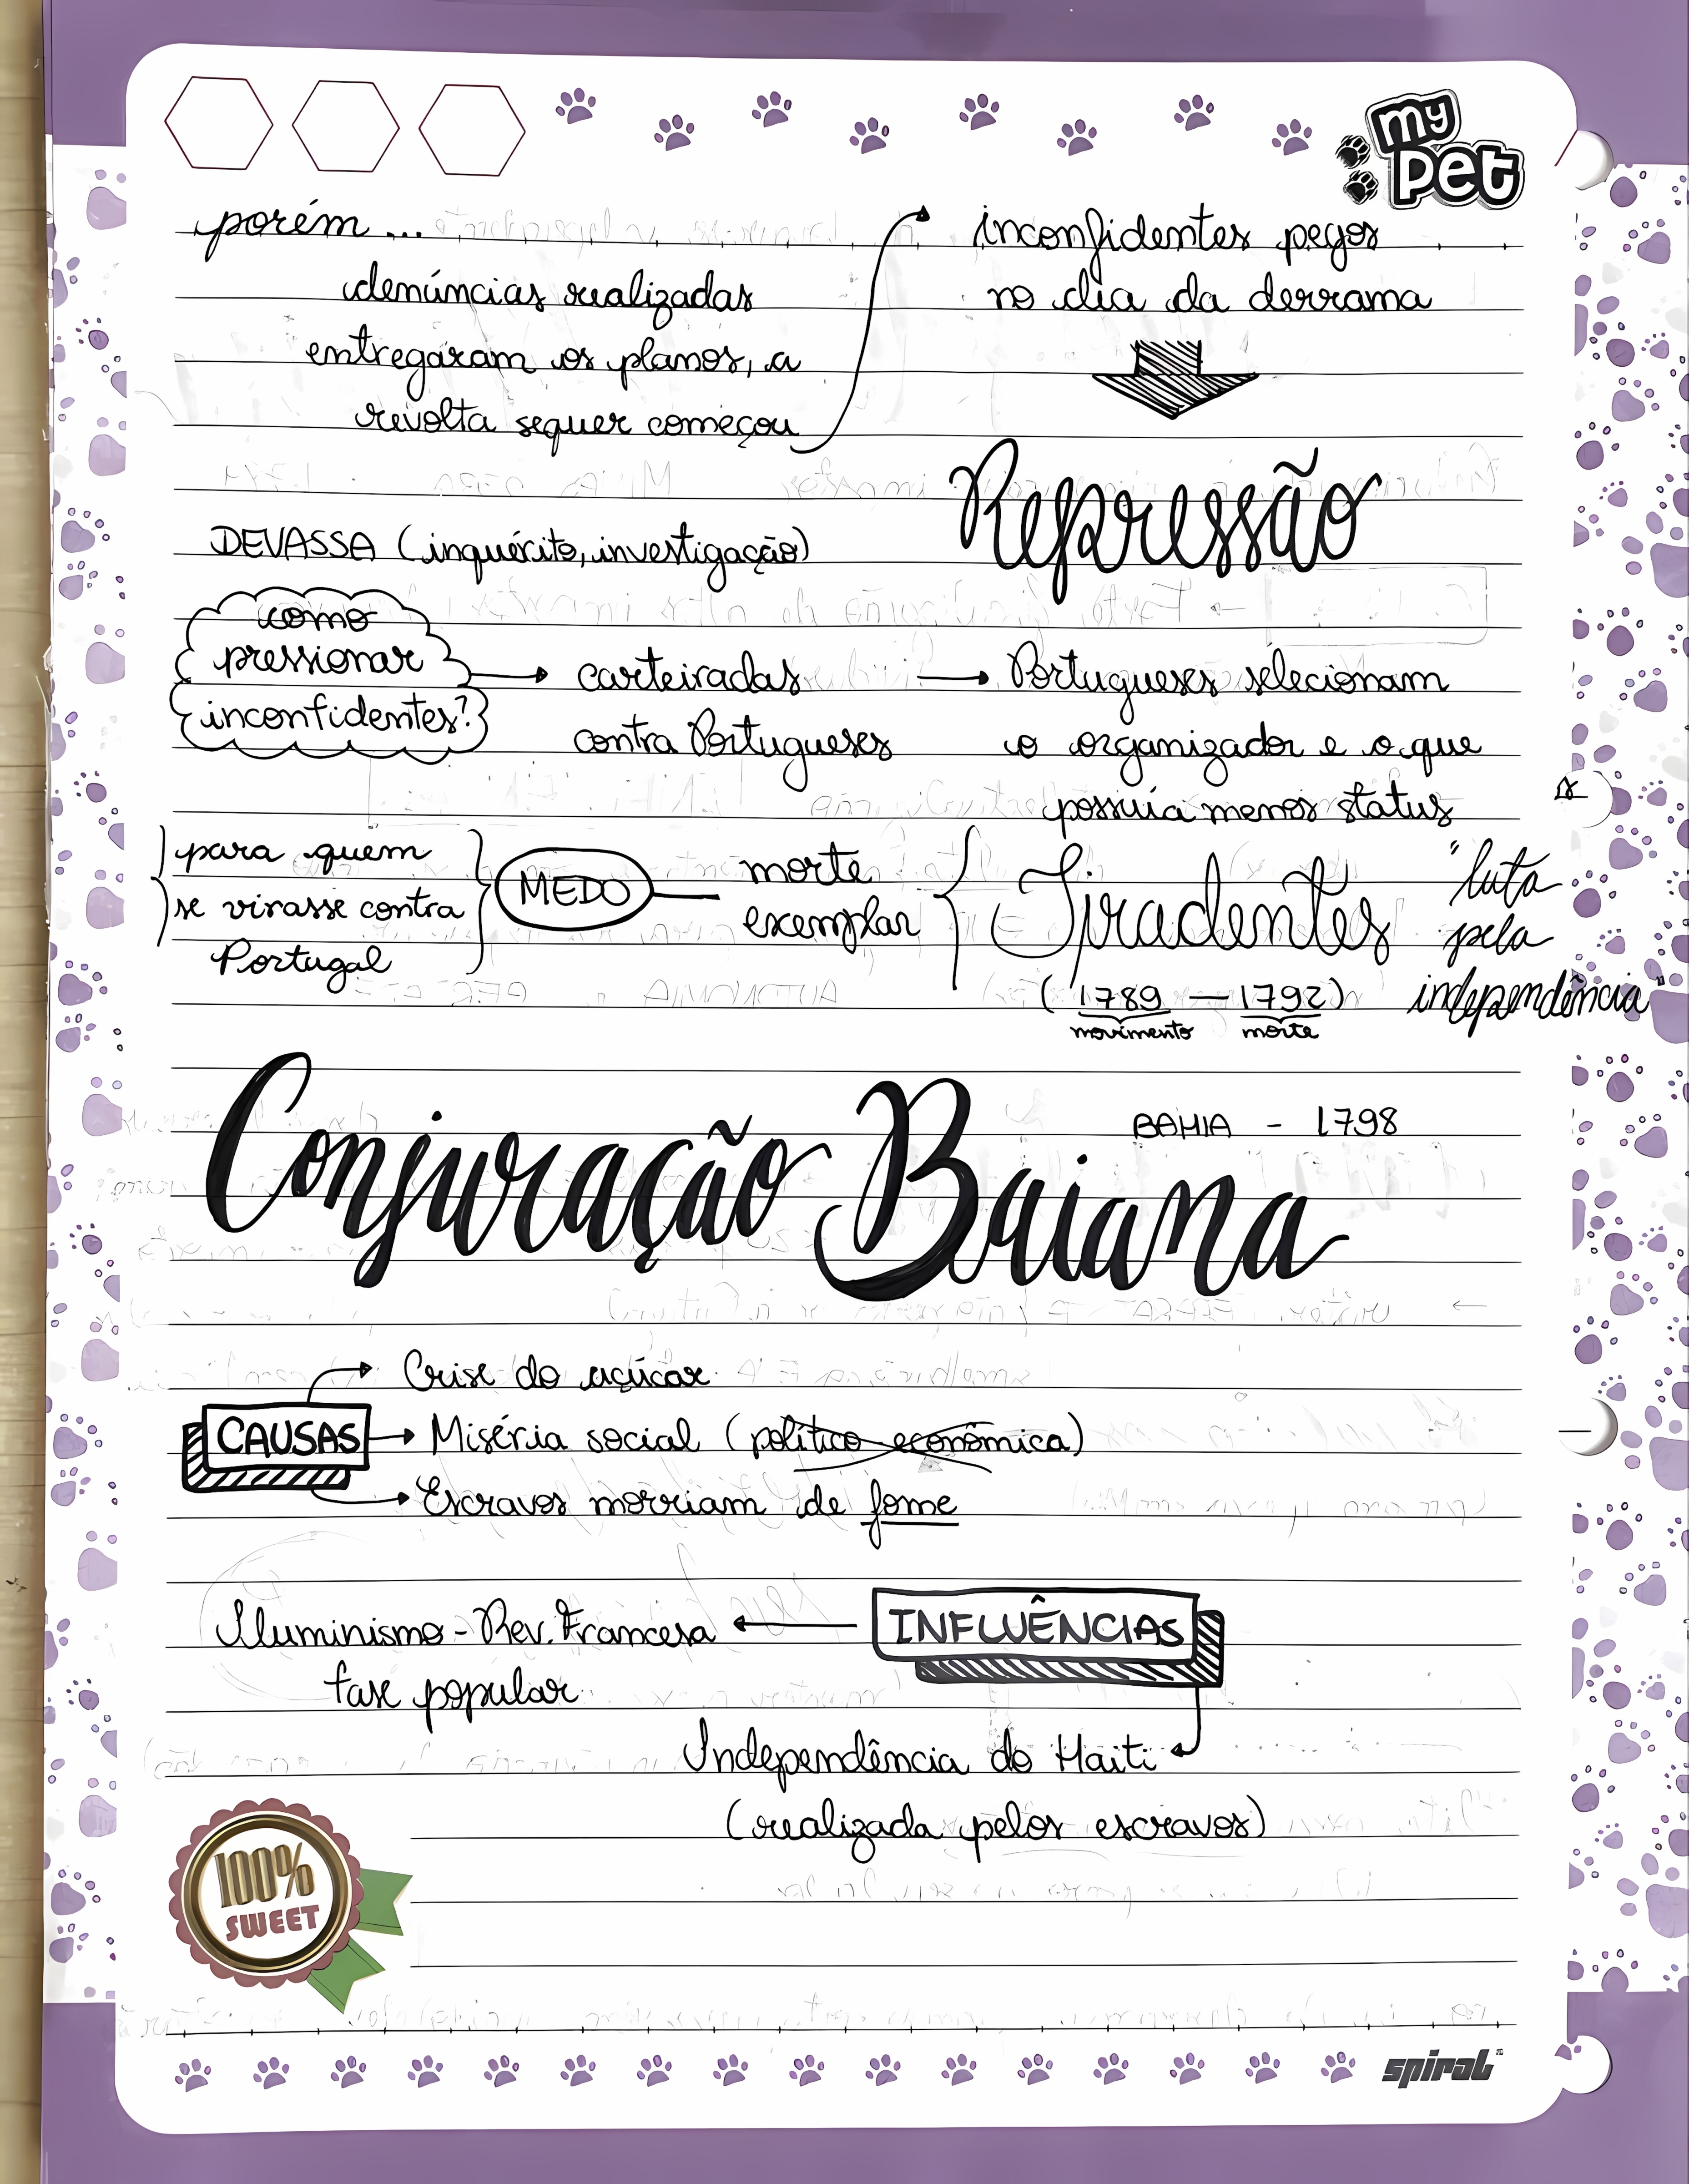 my
pet
porém...
denúncias realizadas
entregaram os planos, a
revolta sequer começou
inconfidentes pegos
no dia da derrama
Repressão
DEVASSA (inquérito, investigação)
como
pressionar
inconfidentes?
carteiradas
contra Portugueses
Portugueses selecionam
o organizador e o que
possuía menos status
para quem
se virasse contra
Portugal
MEDO
morte
exemplar
Tiradentes
(1789 — 1792)
movimento morte
"luta
pela
independência"
Conjuração Baiana
BAHIA - 1798
CAUSAS
Crise do açúcar
Miséria social (político econômica)
Escravos morriam de fome
INFLUÊNCIAS
Iluminismo - Rev. Francesa
fase popular
Independência do Haiti
(realizada pelos escravos)
100%
SWEET
spiral